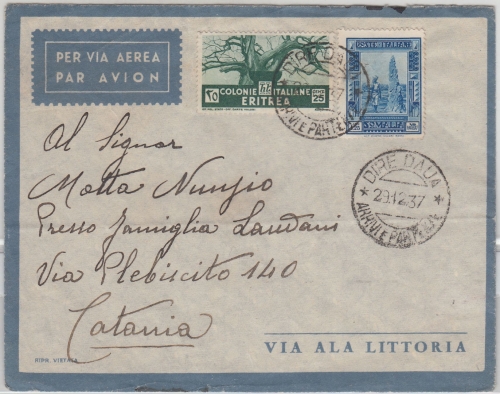 PER VIA AEREA
PAR AVION
COLONIE ITALIANE
ERITREA
25
POSTE ITALIANE
SOMALIA
DIRE DAUA
ARRIVI E PARTENZE
DIRE DAUA
29.12.37
ARRIVI E PARTENZE
Al Signor
Motta Nunzio
Presso famiglia Laudani
Via Plebiscito 140
Catania
VIA ALA LITTORIA